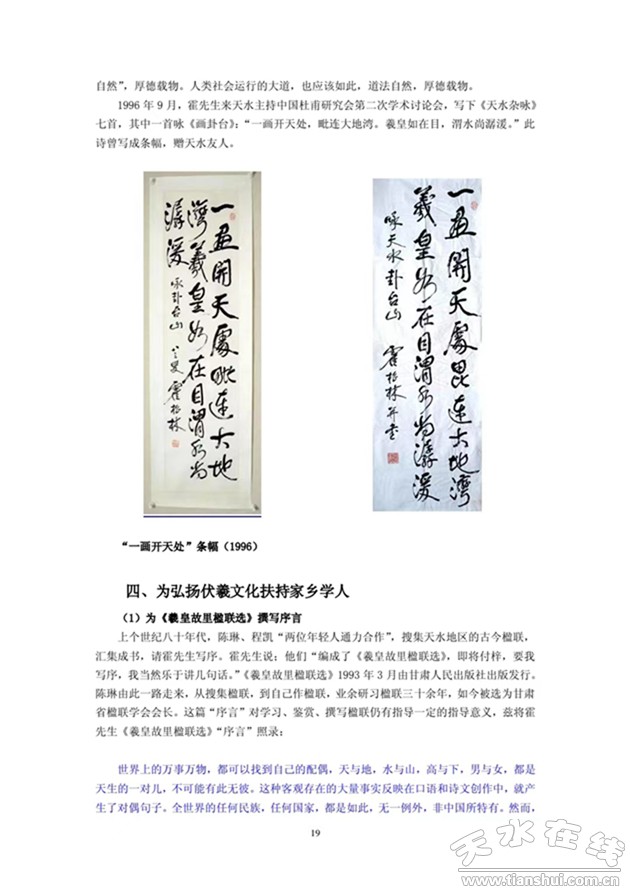 自然”，厚德载物。人类社会运行的大道，也应该如此，道法自然，厚德载物。
1996 年 9 月，霍先生来天水主持中国杜甫研究会第二次学术讨论会，写下《天水杂咏》
七首，其中一首咏《画卦台》：“一画开天处，毗连大地湾。羲皇如在目，渭水尚潺湲。”此
诗曾写成条幅，赠天水友人。
一画開天處毗連大地
灣羲皇如在目渭水尚
潺湲 咏卦台山 霍松林
一画開天處毘連大地灣
羲皇如在目渭水尚潺湲
咏天水卦台山 霍松林并书
“一画开天处”条幅（1996）
四、为弘扬伏羲文化扶持家乡学人
（1）为《羲皇故里楹联选》撰写序言
上个世纪八十年代，陈琳、程凯“两位年轻人通力合作”，搜集天水地区的古今楹联，
汇集成书，请霍先生写序。霍先生说：他们“编成了《羲皇故里楹联选》，即将付梓，要我
写序，我当然乐于讲几句话。”《羲皇故里楹联选》1993 年 3 月由甘肃人民出版社出版发行。
陈琳由此一路走来，从搜集楹联，到自己作楹联，业余研习楹联三十余年，如今被选为甘肃
省楹联学会会长。这篇“序言”对学习、鉴赏、撰写楹联仍有指导一定的指导意义，兹将霍
先生《羲皇故里楹联选》“序言”照录：
世界上的万事万物，都可以找到自己的配偶，天与地，水与山，高与下，男与女，都是
天生的一对儿，不可能有此无彼。这种客观存在的大量事实反映在口语和诗文创作中，就产
生了对偶句子。全世界的任何民族，任何国家，都是如此，无一例外，非中国所特有。然而，
19
天水在线
www.tianshui.com.cn